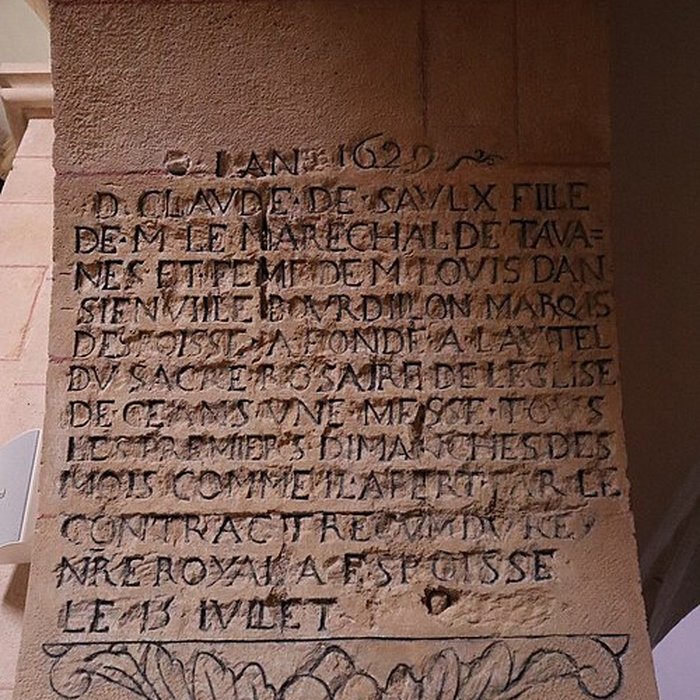 LAN 1629
D. CLAVDE · DE · SAVLX FILLE
DE · M LE MARECHAL · DE TAVA=
NES ET FEME DE M LOVIS DAN
SIENVILLE BOVRDILLON MARQIS
DESPOISSE · A FONDÉ · A LAVTEL
DV SACRE · ROSAIRE DE LEGLISE
DE · CEANS VNE · MESSE · TOVS
LES PREMIERS DIMANCHES DES
MOIS COMME IL · APERT PAR LE
CONTRACT
ROYAL A ESPOISSE
LE 15 IVILLET